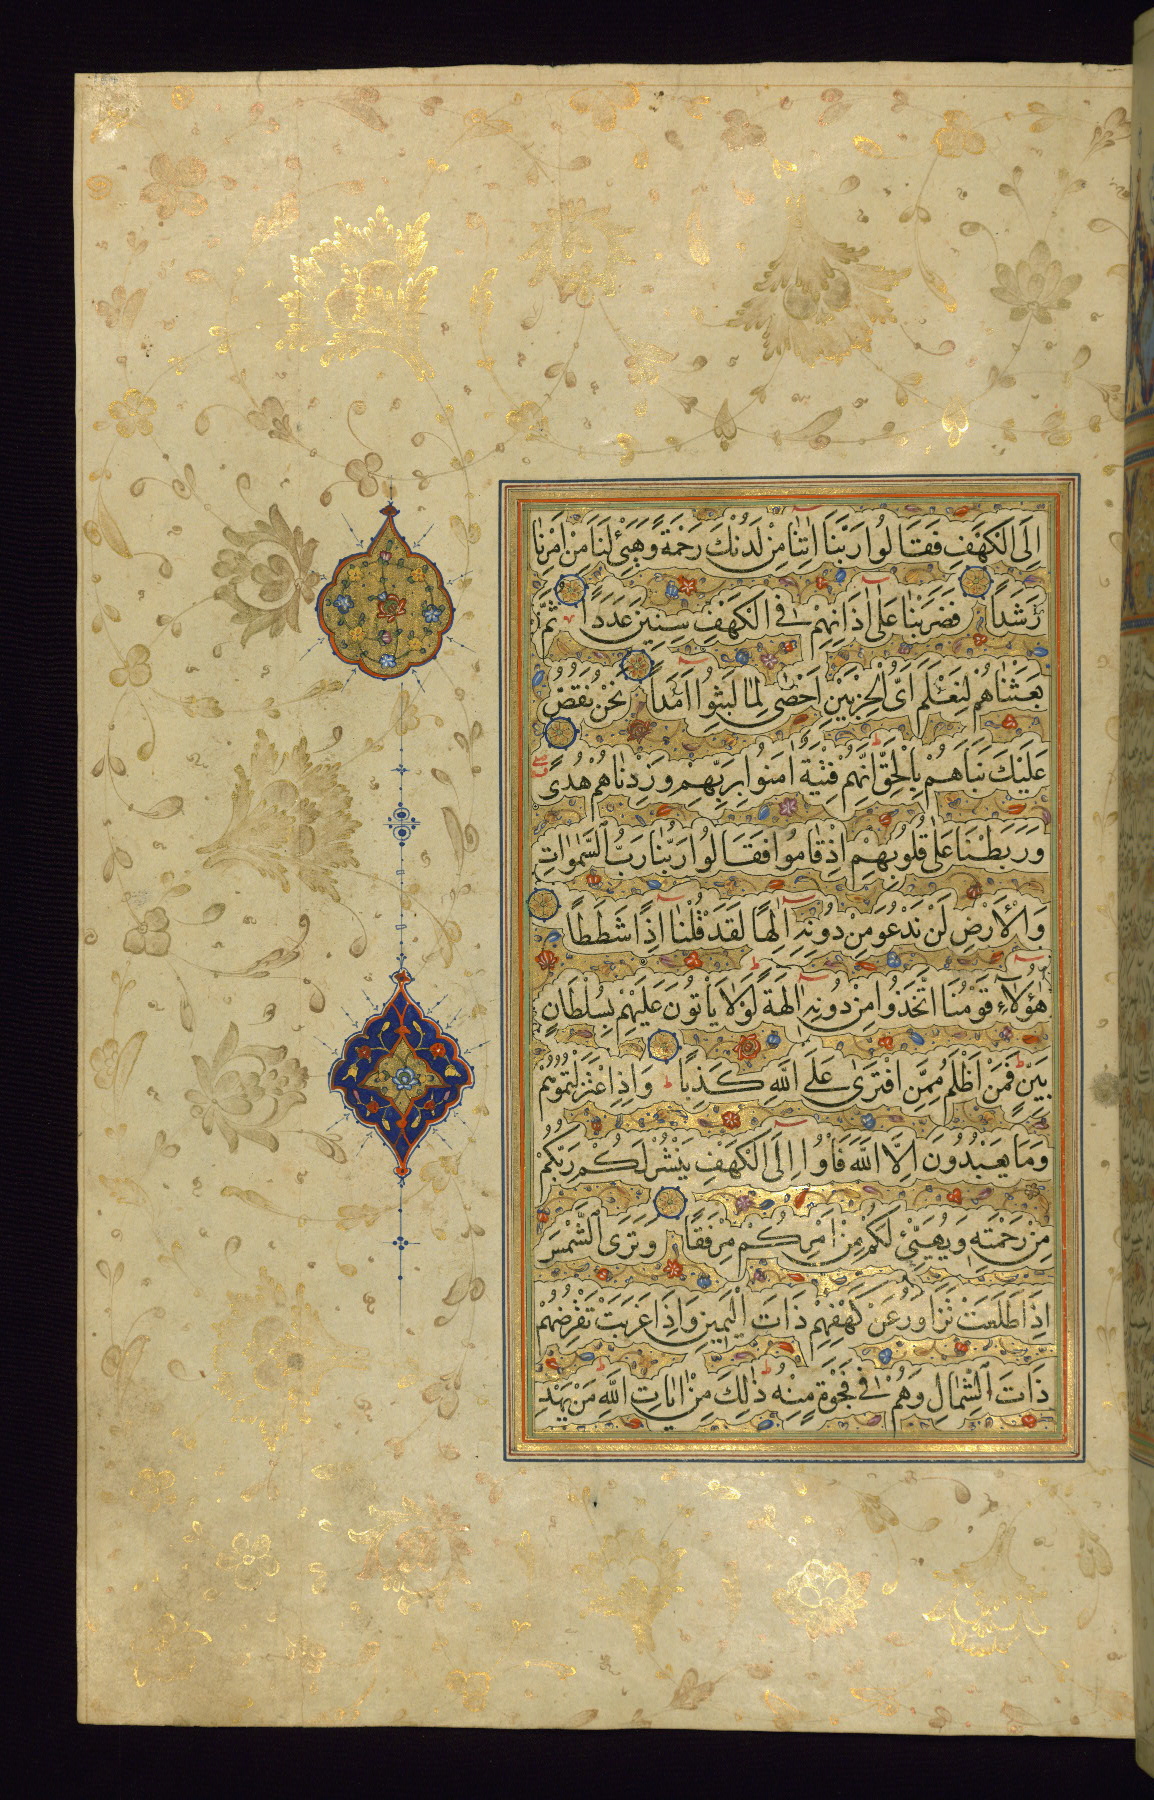 اِلَى الْكَهْفِ فَقَالُوا رَبَّنَا اٰتِنَا مِنْ لَدُنْكَ رَحْمَةً وَهَيِّئْ لَنَا مِنْ اَمْرِنَا
رَشَدًا فَضَرَبْنَا عَلٰى اٰذَانِهِمْ فِى الْكَهْفِ سِنِينَ عَدَدًا ثُمَّ
بَعَثْنَاهُمْ لِنَعْلَمَ اَىُّ الْحِزْبَيْنِ اَحْصٰى لِمَا لَبِثُوا اَمَدًا نَحْنُ نَقُصُّ
عَلَيْكَ نَبَاَهُمْ بِالْحَقِّ اِنَّهُمْ فِتْيَةٌ اٰمَنُوا بِرَبِّهِمْ وَزِدْنَاهُمْ هُدًى
وَرَبَطْنَا عَلٰى قُلُوبِهِمْ اِذْ قَامُوا فَقَالُوا رَبُّنَا رَبُّ السَّمٰوَاتِ
وَالْاَرْضِ لَنْ نَدْعُوَ مِنْ دُونِهِ اِلٰهًا لَقَدْ قُلْنَا اِذًا شَطَطًا
هٰؤُلَاءِ قَوْمُنَا اتَّخَذُوا مِنْ دُونِهِ اٰلِهَةً لَوْلَا يَاْتُونَ عَلَيْهِمْ بِسُلْطَانٍ
بَيِّنٍ فَمَنْ اَظْلَمُ مِمَّنِ افْتَرٰى عَلَى اللّٰهِ كَذِبًا وَاِذِ اعْتَزَلْتُمُوهُمْ
وَمَا يَعْبُدُونَ اِلَّا اللّٰهَ فَاْوُا اِلَى الْكَهْفِ يَنْشُرْ لَكُمْ رَبُّكُمْ
مِنْ رَحْمَتِهِ وَيُهَيِّئْ لَكُمْ مِنْ اَمْرِكُمْ مِرْفَقًا وَتَرَى الشَّمْسَ
اِذَا طَلَعَتْ تَزَاوَرُ عَنْ كَهْفِهِمْ ذَاتَ الْيَمِينِ وَاِذَا غَرَبَتْ تَقْرِضُهُمْ
ذَاتَ الشِّمَالِ وَهُمْ فِى فَجْوَةٍ مِنْهُ ذٰلِكَ مِنْ اٰيَاتِ اللّٰهِ مَنْ يَهْدِ